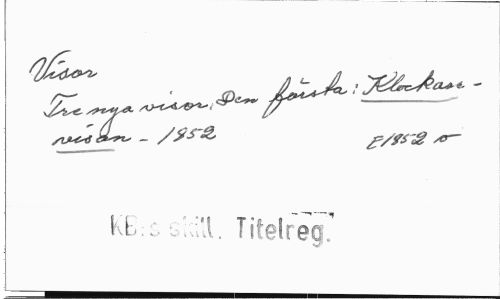 Visor
Tre nya visor, Den första: Klockare-
visan - 1852 E1852 o
KB:s skill. Titelreg.